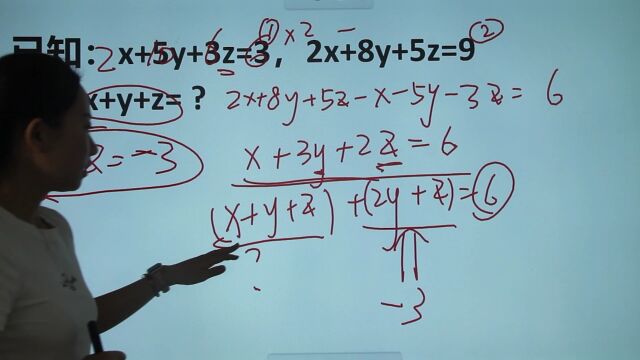 ① x2 - ②
已知：x+5y+3z=3，2x+8y+5z=9
2 6
x+y+z=？ 2x+8y+5z-x-5y-3z=6
x+3y+2z=6
z=-3
(x+y+z) +(2y+z)=6
?
-3